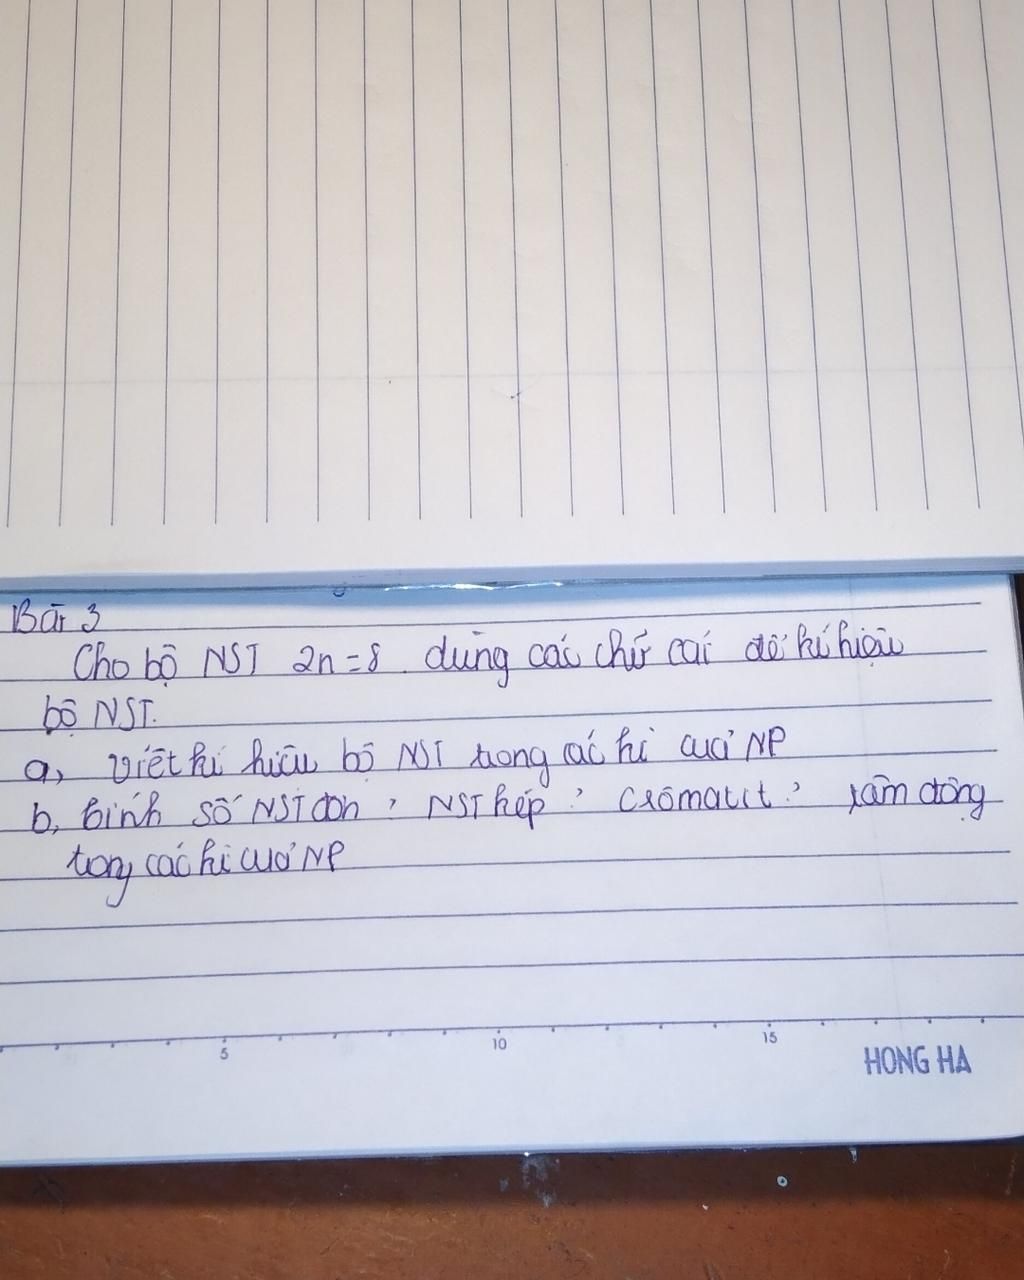 Bài 3
Cho bộ NST 2n=8. dùng các chữ cái để kí hiệu
bộ NST.
a, viết kí hiệu bộ NST trong các kì của NP
b, tính số NST đơn, NST kép, Crômatit, tâm động
trong các kì của NP
5 10 15
HONG HA